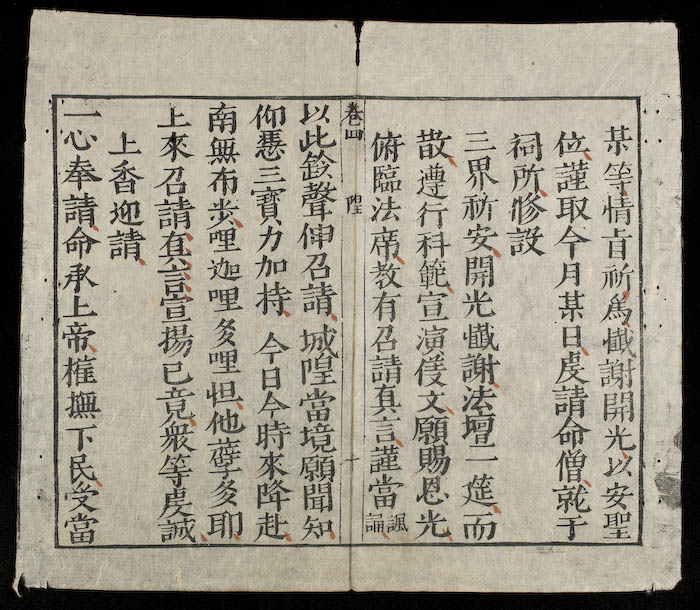 某等情旨祈爲懴謝開光以安聖
位謹取今月某日虔請命僧就于
祠所修設
三界祈安開光懴謝法壇一筵而
散遵行科範宣演俊文願賜恩光
俯臨法席教有召請真言謹當諷誦
卷四 隍 十
以此鈴聲伸召請城隍當境願聞知
仰憑三寳力加持 今日今時來降赴
南無布步哩迦哩多哩怛他孽多耶
上來召請真言宣揚已竟衆等虔誠
上香迎請
一心奉請命承上帝權撫下民受當